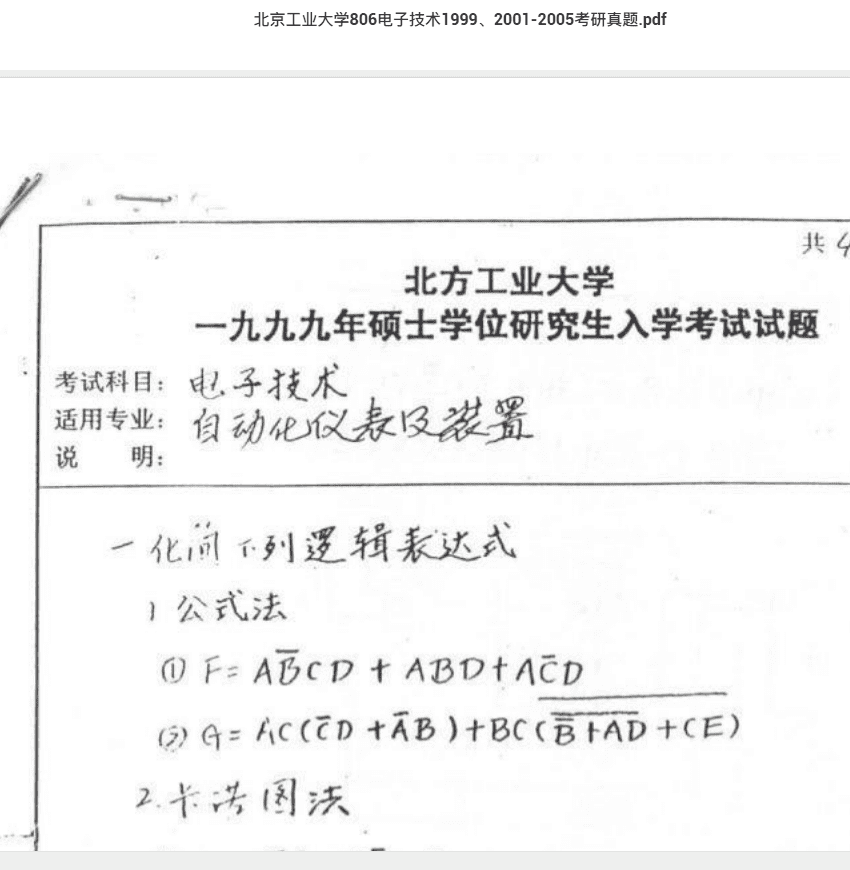 北京工业大学806电子技术1999、2001-2005考研真题.pdf
共4
北方工业大学
一九九九年硕士学位研究生入学考试试题
考试科目: 电子技术
适用专业: 自动化仪表及装置
说 明:
一 化简下列逻辑表达式
1 公式法
① F= AB̅CD + ABD + AC̅D
② G= AC(C̅D + A̅B) + BC(\overline{\overline{B̅ + AD} + CE})
2. 卡诺图法